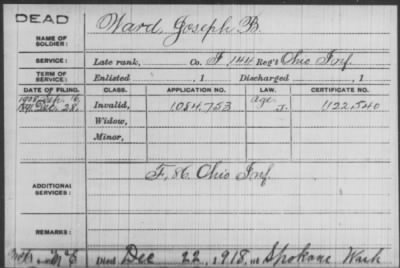 DEAD
NAME OF SOLDIER: Ward, Joseph B.
SERVICE: Late rank, Co. F, 144 Reg't Ohio Inf.
TERM OF SERVICE: Enlisted , 1 Discharged , 1
DATE OF FILING. CLASS. APPLICATION NO. LAW. CERTIFICATE NO.
1908 Sep. 16. Invalid, 1084,753 age 1122,540
28. J.
Widow,
Minor,
ADDITIONAL SERVICES: F, 86, Ohio Inf.
REMARKS:
Died Dec 22, 1918, at Spokane Wash